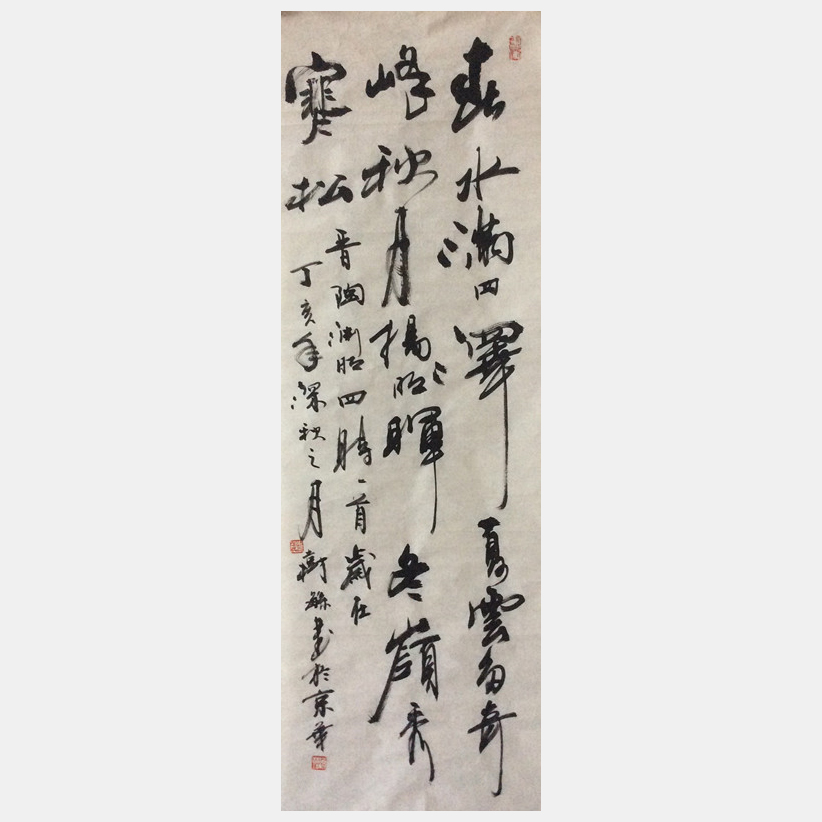 春水滿四澤夏雲多奇
峰秋月揚明暉冬嶺秀
寒松
晋陶渊明四時一首歲在
丁亥年深秋之月樹林書於京華